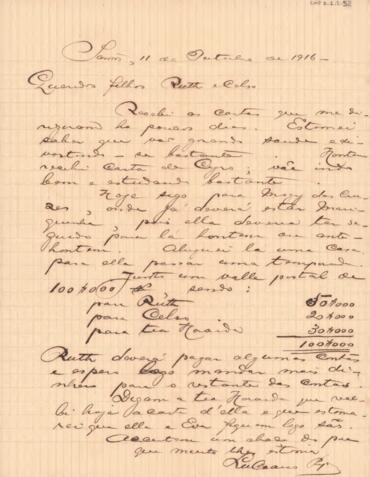 Santos, 11 de Outubro de 1916 -
Queridos filhos Ruth e Celso
Recebi as cartas que me di-
rigiram ha poucos dias. Estimei
saber que vão gosando saude e di-
vertindo-se bastante. Hontem
recebi carta de Cyro, vae indo
bem e estudando bastante.
Hoje sigo para Mogy das Cru-
zes, onde já deverá estar
pois ella deveria ter se-
guido para lá hontem ou ante-
hontem. Aluguei lá uma casa
para ella passar uma temporada
Junto um valle postal de
100$000 sendo:
para Ruth 50$000
para Celso 20$000
para tia Zoraida 30$000
100$000
Ruth deverá pagar algumas contas
e espero logo mandar mais di-
nheiro para o restante das contas.
Digam a tia Zoraida que rece-
bi hoje a carta d'ella e que estima-
rei que ella e Eva fiquem logo sãs.
Acceitem um abraço do pae
que muito lhes estima